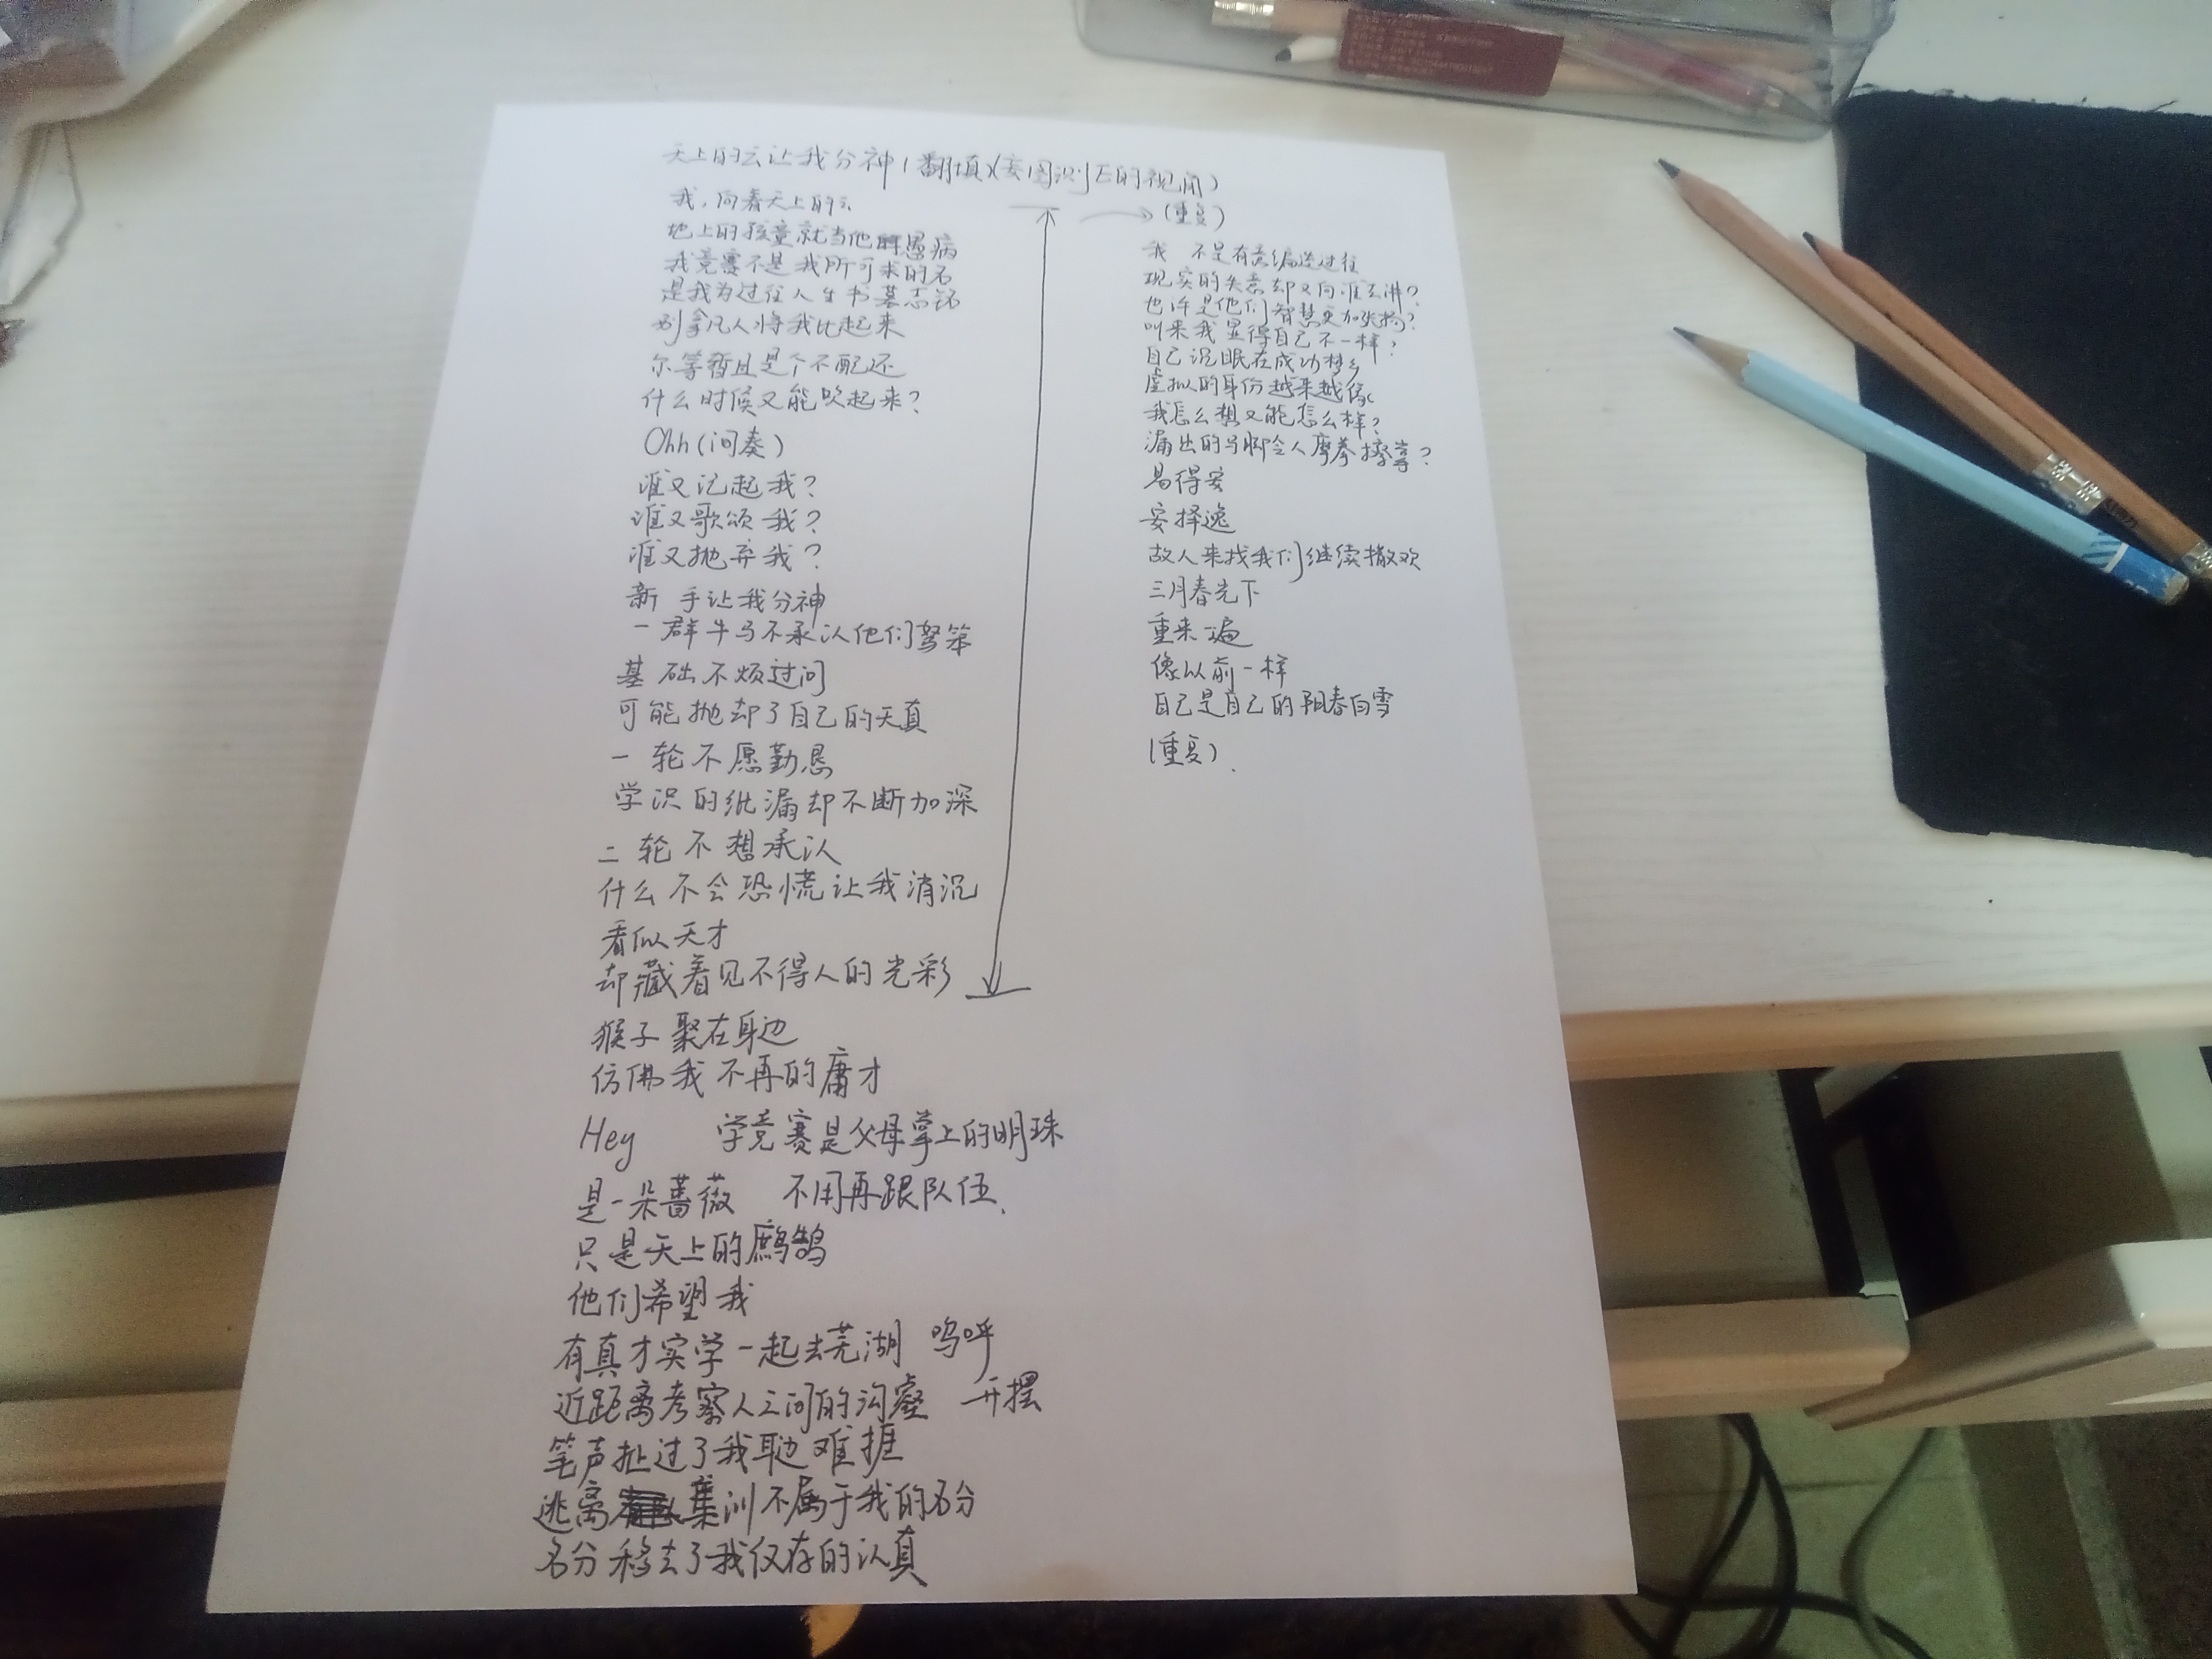 天上的云让我分神(翻填)(妄图识JE的视角)
我,向着天上的云
地上的孩童就当他愚病
我竞赛不是我所可求的名
是我为过往人生书墓志铭
别拿凡人将我比起来
尔等暂且是个不配还
什么时候又能吹起来?
Ohh(间奏)
谁又记起我?
谁又歌颂我?
谁又抛弃我?
新 手让我分神
一群牛马不承认他们驽笨
基础不烦过问
可能抛却了自己的天真
一轮不愿勤恳
学识的纰漏却不断加深
二轮不想承认
什么不会恐慌让我消沉
看似天才
却藏着见不得人的光彩
猴子聚在身边
仿佛我不再的庸才
Hey 学竞赛是父母掌上的明珠
是一朵蔷薇 不用再跟队伍.
只是天上的鹧鸪
他们希望我
有真才实学一起去芜湖 呜呼
近距离考察人之间的沟壑 开摆
笔声扯过了我耳边 难捱
逃离集训不属于我的名分
名分移去了我仅存的认真
(重复)
我 不是有意编造过往
现实的失意却又向谁去讲?
也许是他们智慧更加张扬?
叫来我显得自己不一样?
自己沉眠在成功梦乡
虚拟的身份越来越像
我怎么想又能怎么样?
漏出的马脚令人摩拳擦掌?
易得安
安择逸
故人来找我们继续撒欢
三月春光下
重来一遍
像以前一样
自己是自己的阳春白雪
(重复).